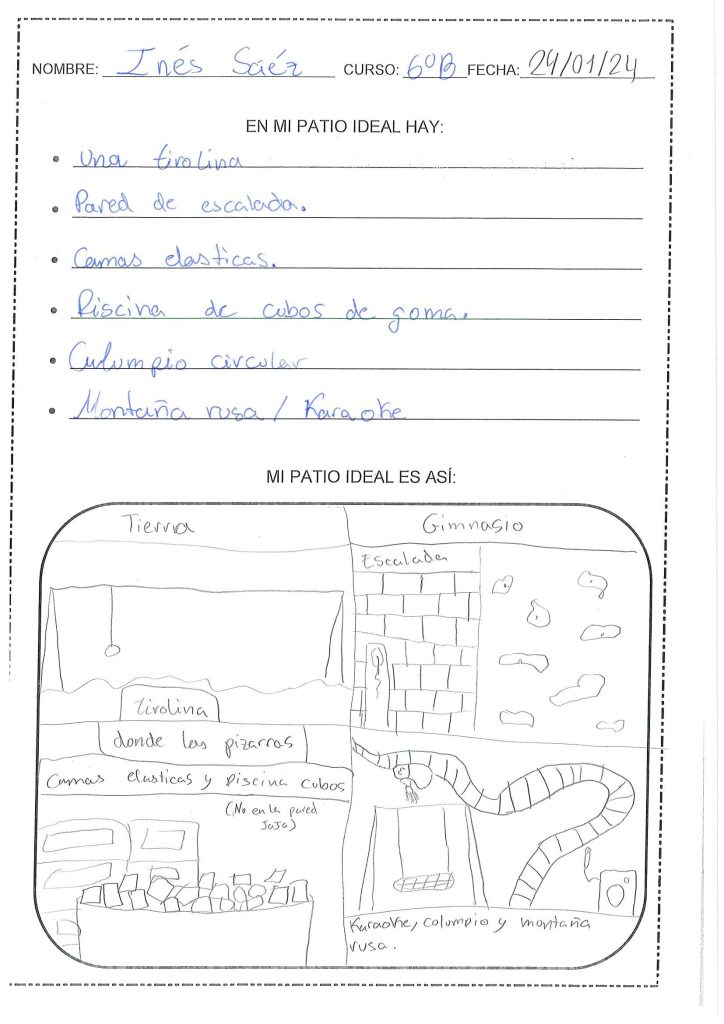 NOMBRE: Inés Saéz CURSO: 6ºB FECHA: 24/01/24
EN MI PATIO IDEAL HAY:
• Una tirolina
• Pared de escalada.
• Camas elasticas.
• Piscina de cubos de goma.
• Culumpio circular
• Montaña rusa / Karaoke
MI PATIO IDEAL ES ASÍ:
Tierra
Gimnasio
Escalada
tirolina
donde las pizarras
Camas elasticas y piscina cubos
(No en la pared
JaJa)
Karaoke, columpio y montaña
rusa.